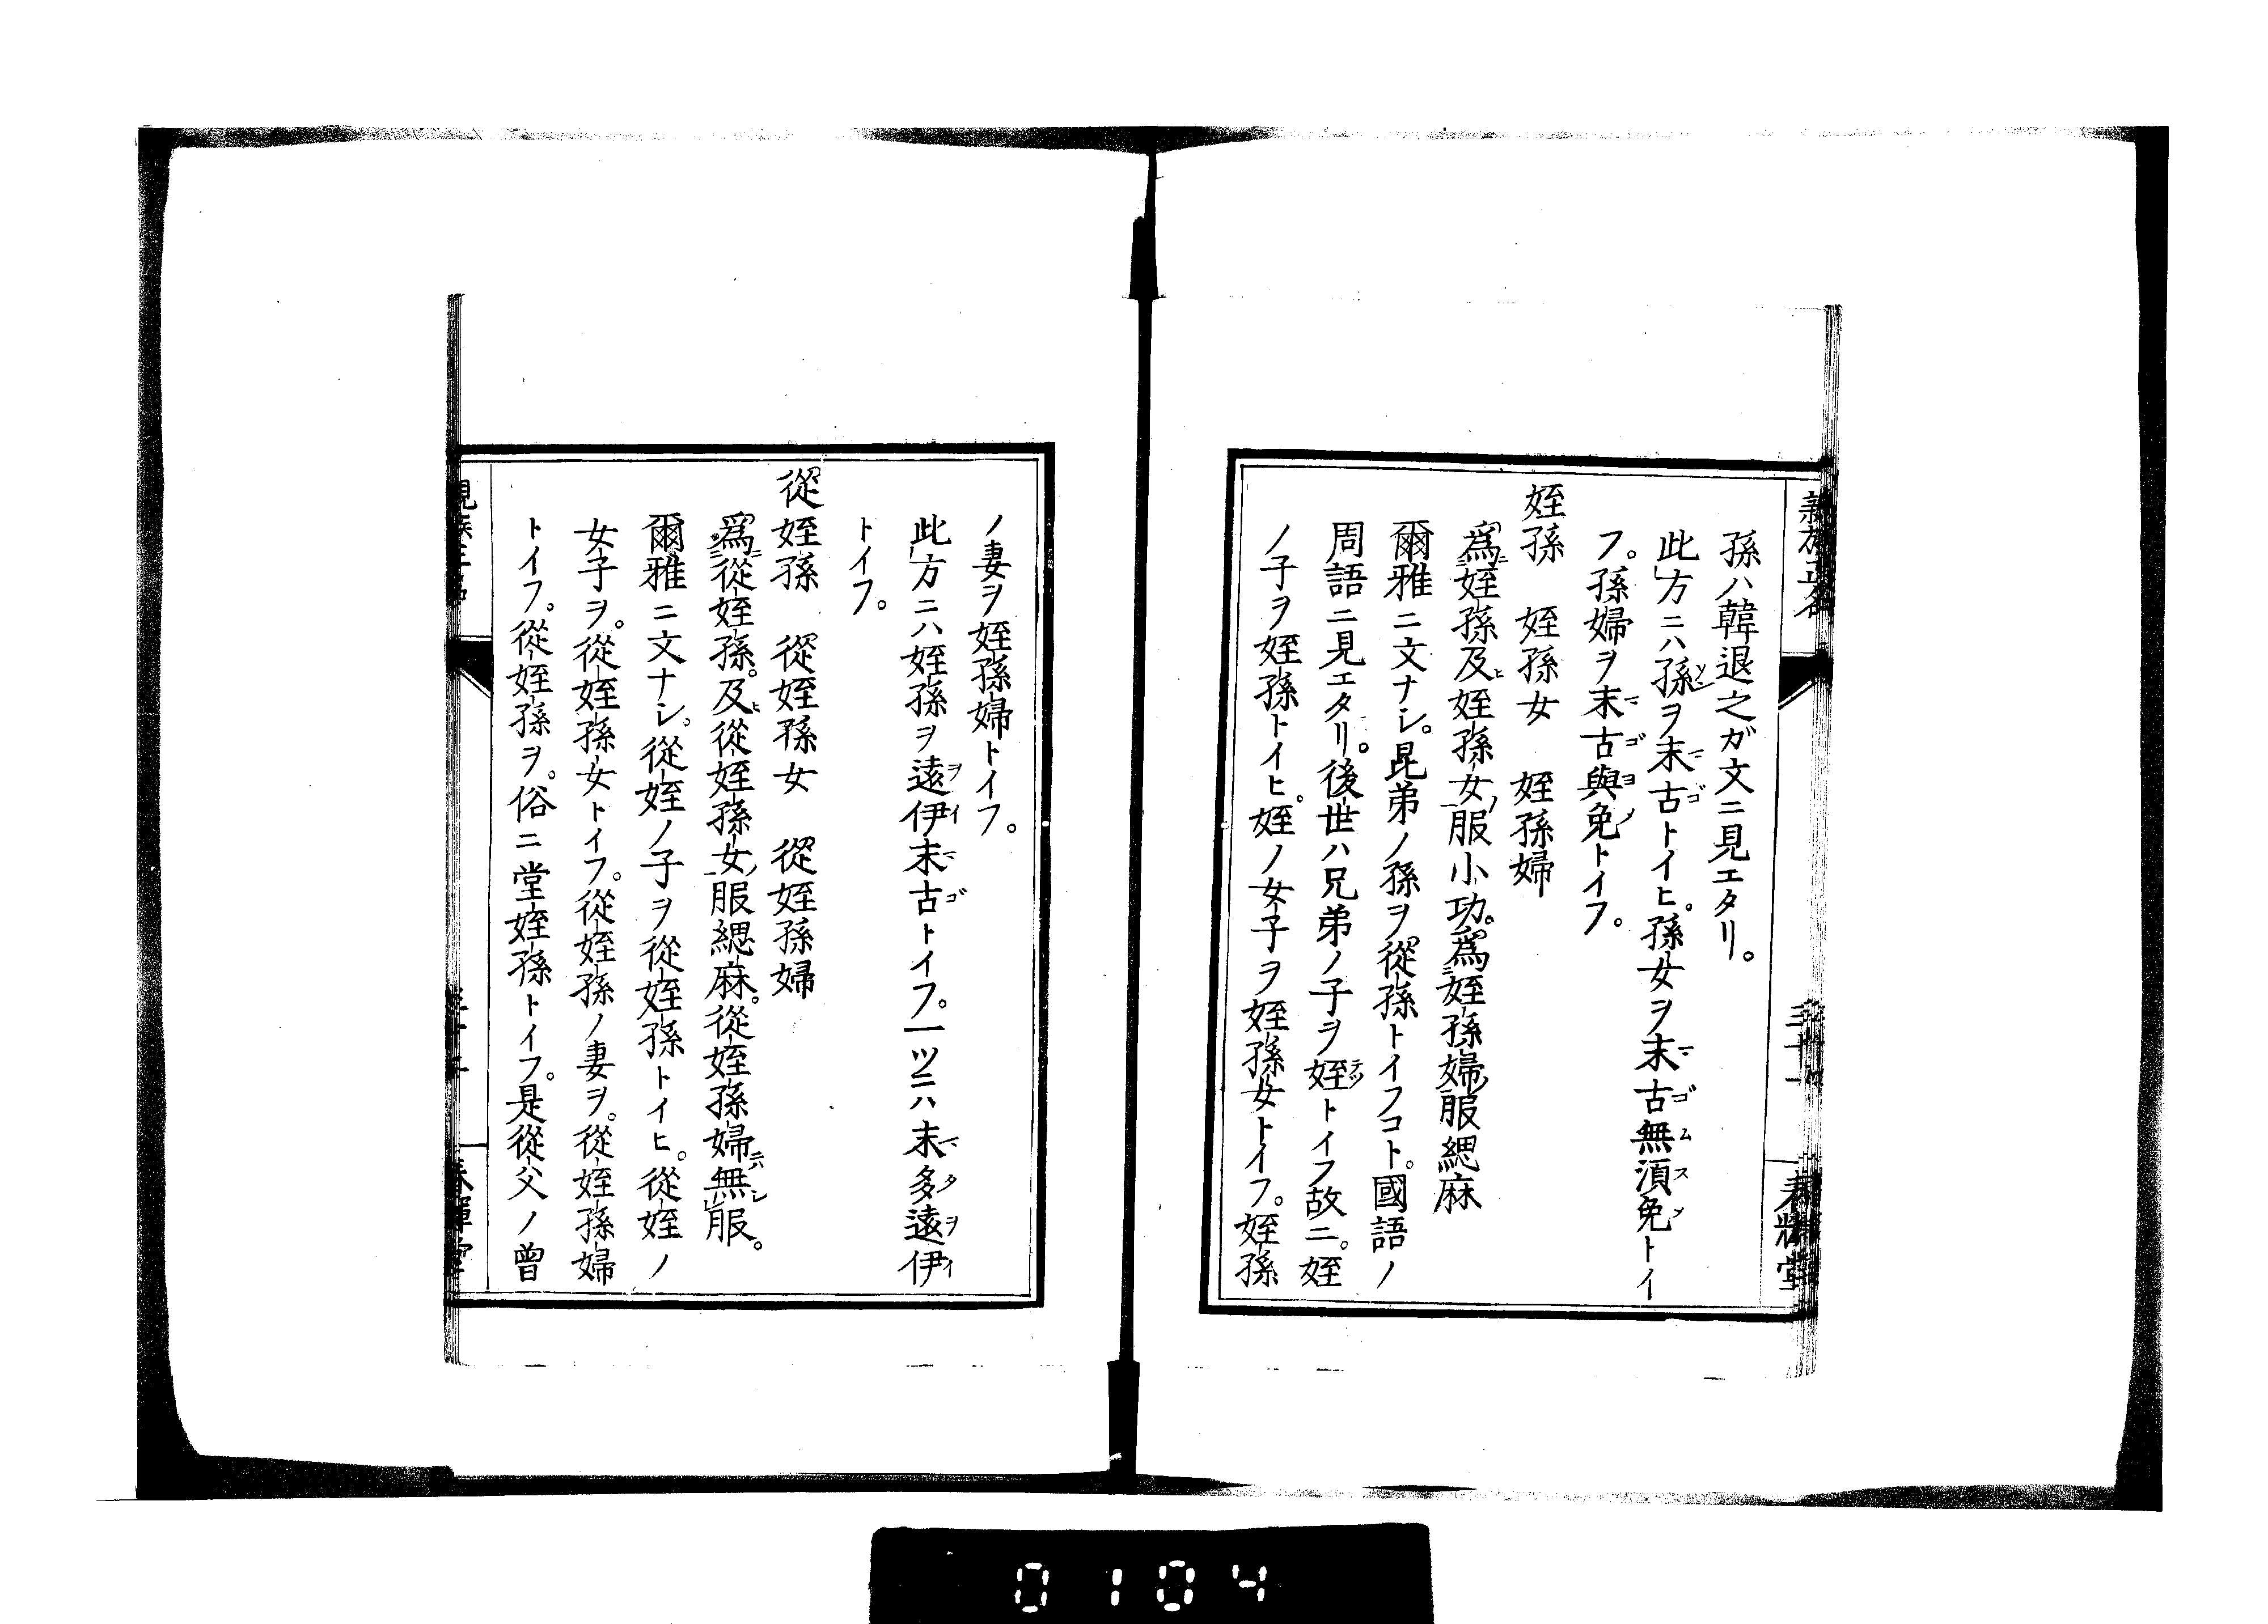 孫ハ韓退之ガ文ニ見エタリ。
此方ニハ孫ヲ末古トイヒ。孫女ヲ末古無須免トイ
フ。孫婦ヲ末古與免トイフ。
姪孫　姪孫女　姪孫婦
爲姪孫及姪孫女服小功。爲姪孫婦服緦麻
爾雅ニ文ナシ。昆弟ノ孫ヲ從孫トイフコト。國語ノ
周語ニ見エタリ。後世ハ兄弟ノ子ヲ姪トイフ故ニ。姪
ノ子ヲ姪孫トイヒ。姪ノ女子ヲ姪孫女トイフ。姪孫
ノ妻ヲ姪孫婦トイフ。
此方ニハ姪孫ヲ遠伊末古トイフ。一ツニハ末多遠伊
トイフ。
從姪孫　從姪孫女　從姪孫婦
爲從姪孫。及從姪孫女服緦麻。從姪孫婦無服。
爾雅ニ文ナシ。從姪ノ子ヲ從姪孫トイヒ。從姪ノ
女子ヲ。從姪孫女トイフ。從姪孫ノ妻ヲ。從姪孫婦
トイフ。從姪孫ヲ。俗ニ堂姪孫トイフ。是從父ノ曾
0104